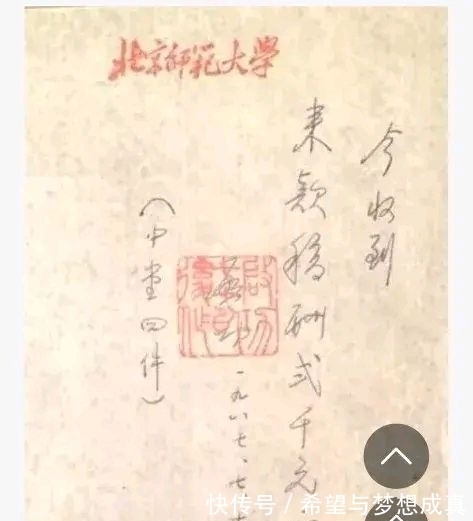 北京师范大学
今收到
来款稿酬弍千元
启功
一九八七、七、
（中堂四件）
快传号／希望与梦想成真